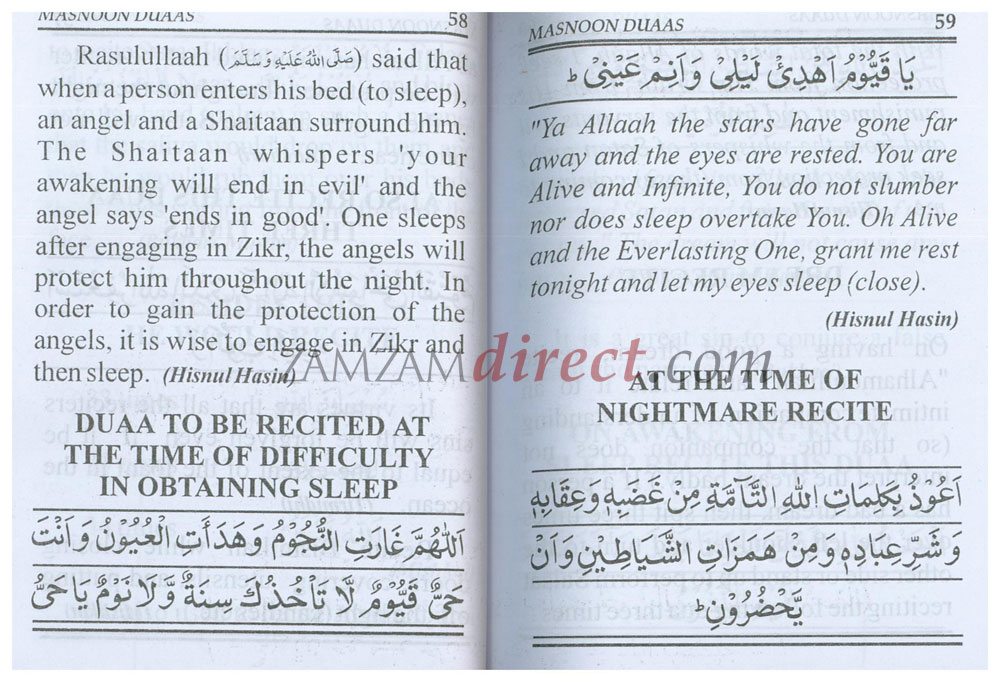 MASNOON DUAAS 58
Rasulullaah (صَلَّى اللهُ عَلَيْهِ وَسَلَّمَ) said that
when a person enters his bed (to sleep),
an angel and a Shaitaan surround him.
The Shaitaan whispers 'your
awakening will end in evil' and the
angel says 'ends in good'. One sleeps
after engaging in Zikr, the angels will
protect him throughout the night. In
order to gain the protection of the
angels, it is wise to engage in Zikr and
then sleep. (Hisnul Hasin)
DUAA TO BE RECITED AT
THE TIME OF DIFFICULTY
IN OBTAINING SLEEP
اَللّٰهُمَّ غَارَتِ النُّجُوْمُ وَهَدَأَتِ الْعُيُوْنُ وَ اَنْتَ
حَىٌّ قَيُّوْمٌ لَّا تَاْخُذُكَ سِنَةٌ وَّلَا نَوْمٌ يَاحَىُّ
MASNOON DUAAS 59
يَا قَيُّوْمُ اَهْدِئْ لَيْلِىْ وَ اَنِمْ عَيْنِىْ ط
"Ya Allaah the stars have gone far
away and the eyes are rested. You are
Alive and Infinite, You do not slumber
nor does sleep overtake You. Oh Alive
and the Everlasting One, grant me rest
tonight and let my eyes sleep (close).
(Hisnul Hasin)
AT THE TIME OF
NIGHTMARE RECITE
اَعُوْذُ بِكَلِمَاتِ اللهِ التَّآمَّةِ مِنْ غَضَبِهٖ وَعِقَابِهٖ
وَ شَرِّ عِبَادِهٖ وَ مِنْ هَمَزَاتِ الشَّيَاطِيْنِ وَ اَنْ
يَّحْضُرُوْنِ ط
ZAMZAMdirect.com